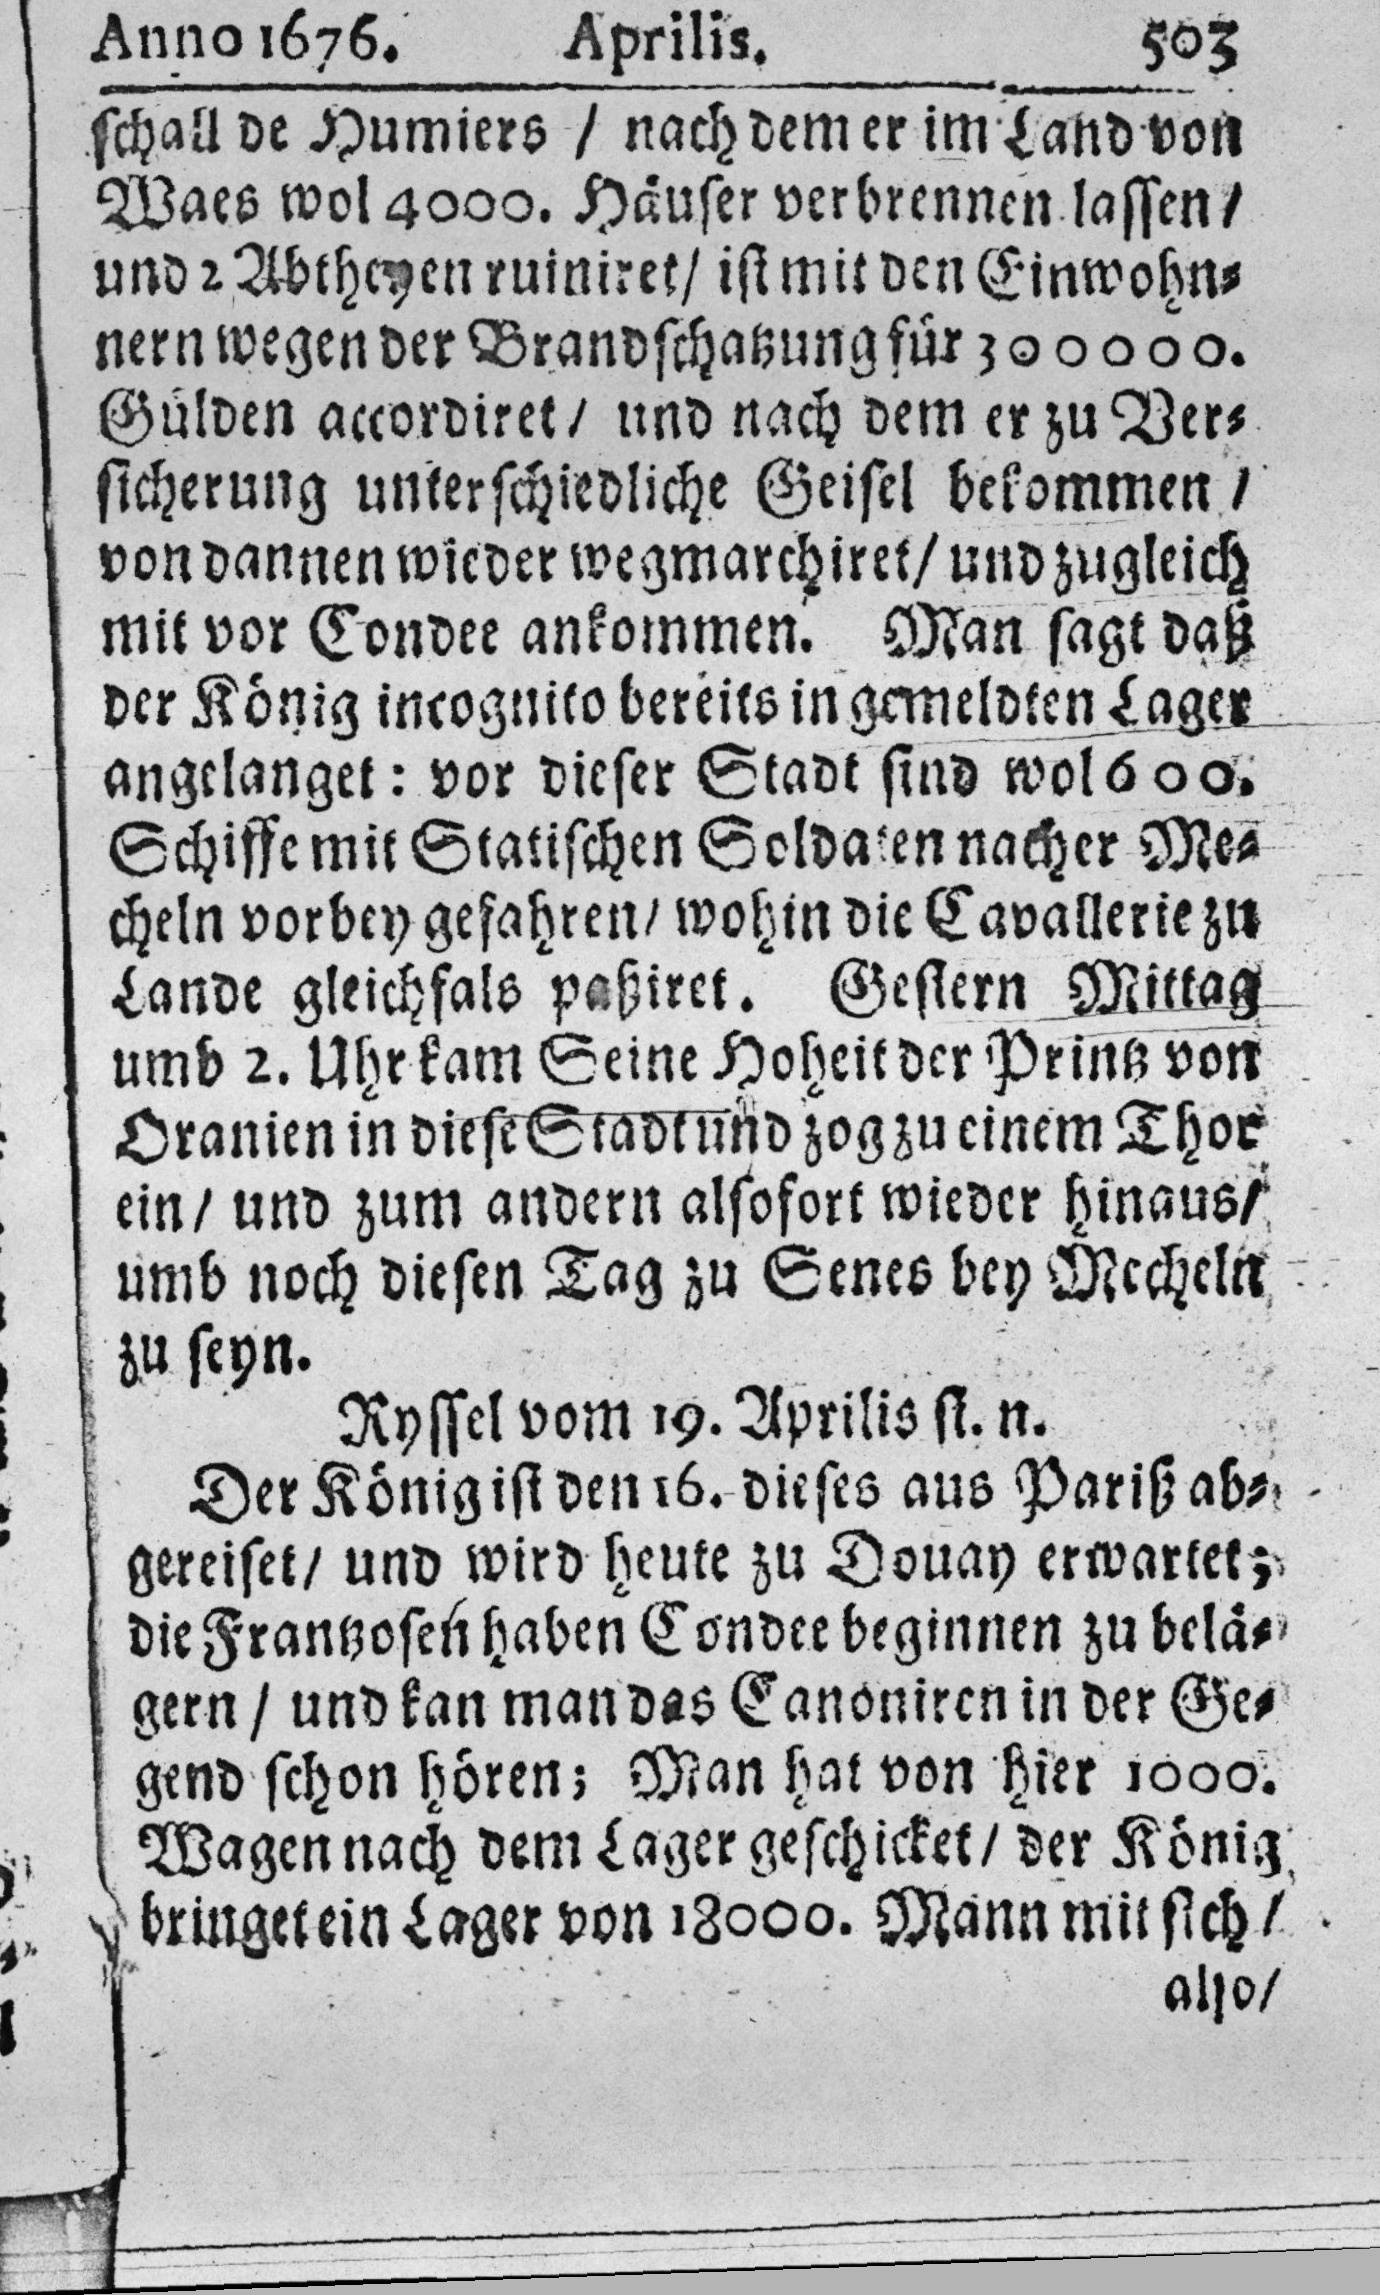 Anno 1676. Aprilis. 503
schall de Humiers / nach dem er im Land von
Waes wol 4000. Häuser verbrennen lassen /
und 2 Abtheyen ruiniret / ist mit den Einwohn-
nern wegen der Brandschatzung für 300000.
Gülden accordiret / und nach dem er zu Ver-
sicherung unterschiedliche Geisel bekommen /
von dannen wieder wegmarchiret / und zugleich
mit vor Condee ankommen. Man sagt daß
der König incognito bereits in gemeldten Lager
angelanget: vor dieser Stadt sind wol 600.
Schiffe mit Statischen Soldaten nacher Me-
cheln vorbey gefahren / wohin die Cavallerie zu
Lande gleichfals paßiret. Gestern Mittag
umb 2. Uhr kam Seine Hoheit der Printz von
Oranien in diese Stadt und zog zu einem Thor
ein / und zum andern alsofort wieder hinaus /
umb noch diesen Tag zu Senes bey Mecheln
zu seyn.
Ryssel vom 19. Aprilis st. n.
Der König ist den 16. dieses aus Pariß ab-
gereiset / und wird heute zu Douay erwartet;
die Frantzosen haben Condee beginnen zu belä-
gern / und kan man das Canoniren in der Ge-
gend schon hören; Man hat von hier 1000.
Wagen nach dem Lager geschicket / der König
bringet ein Lager von 18000. Mann mit sich /
also /